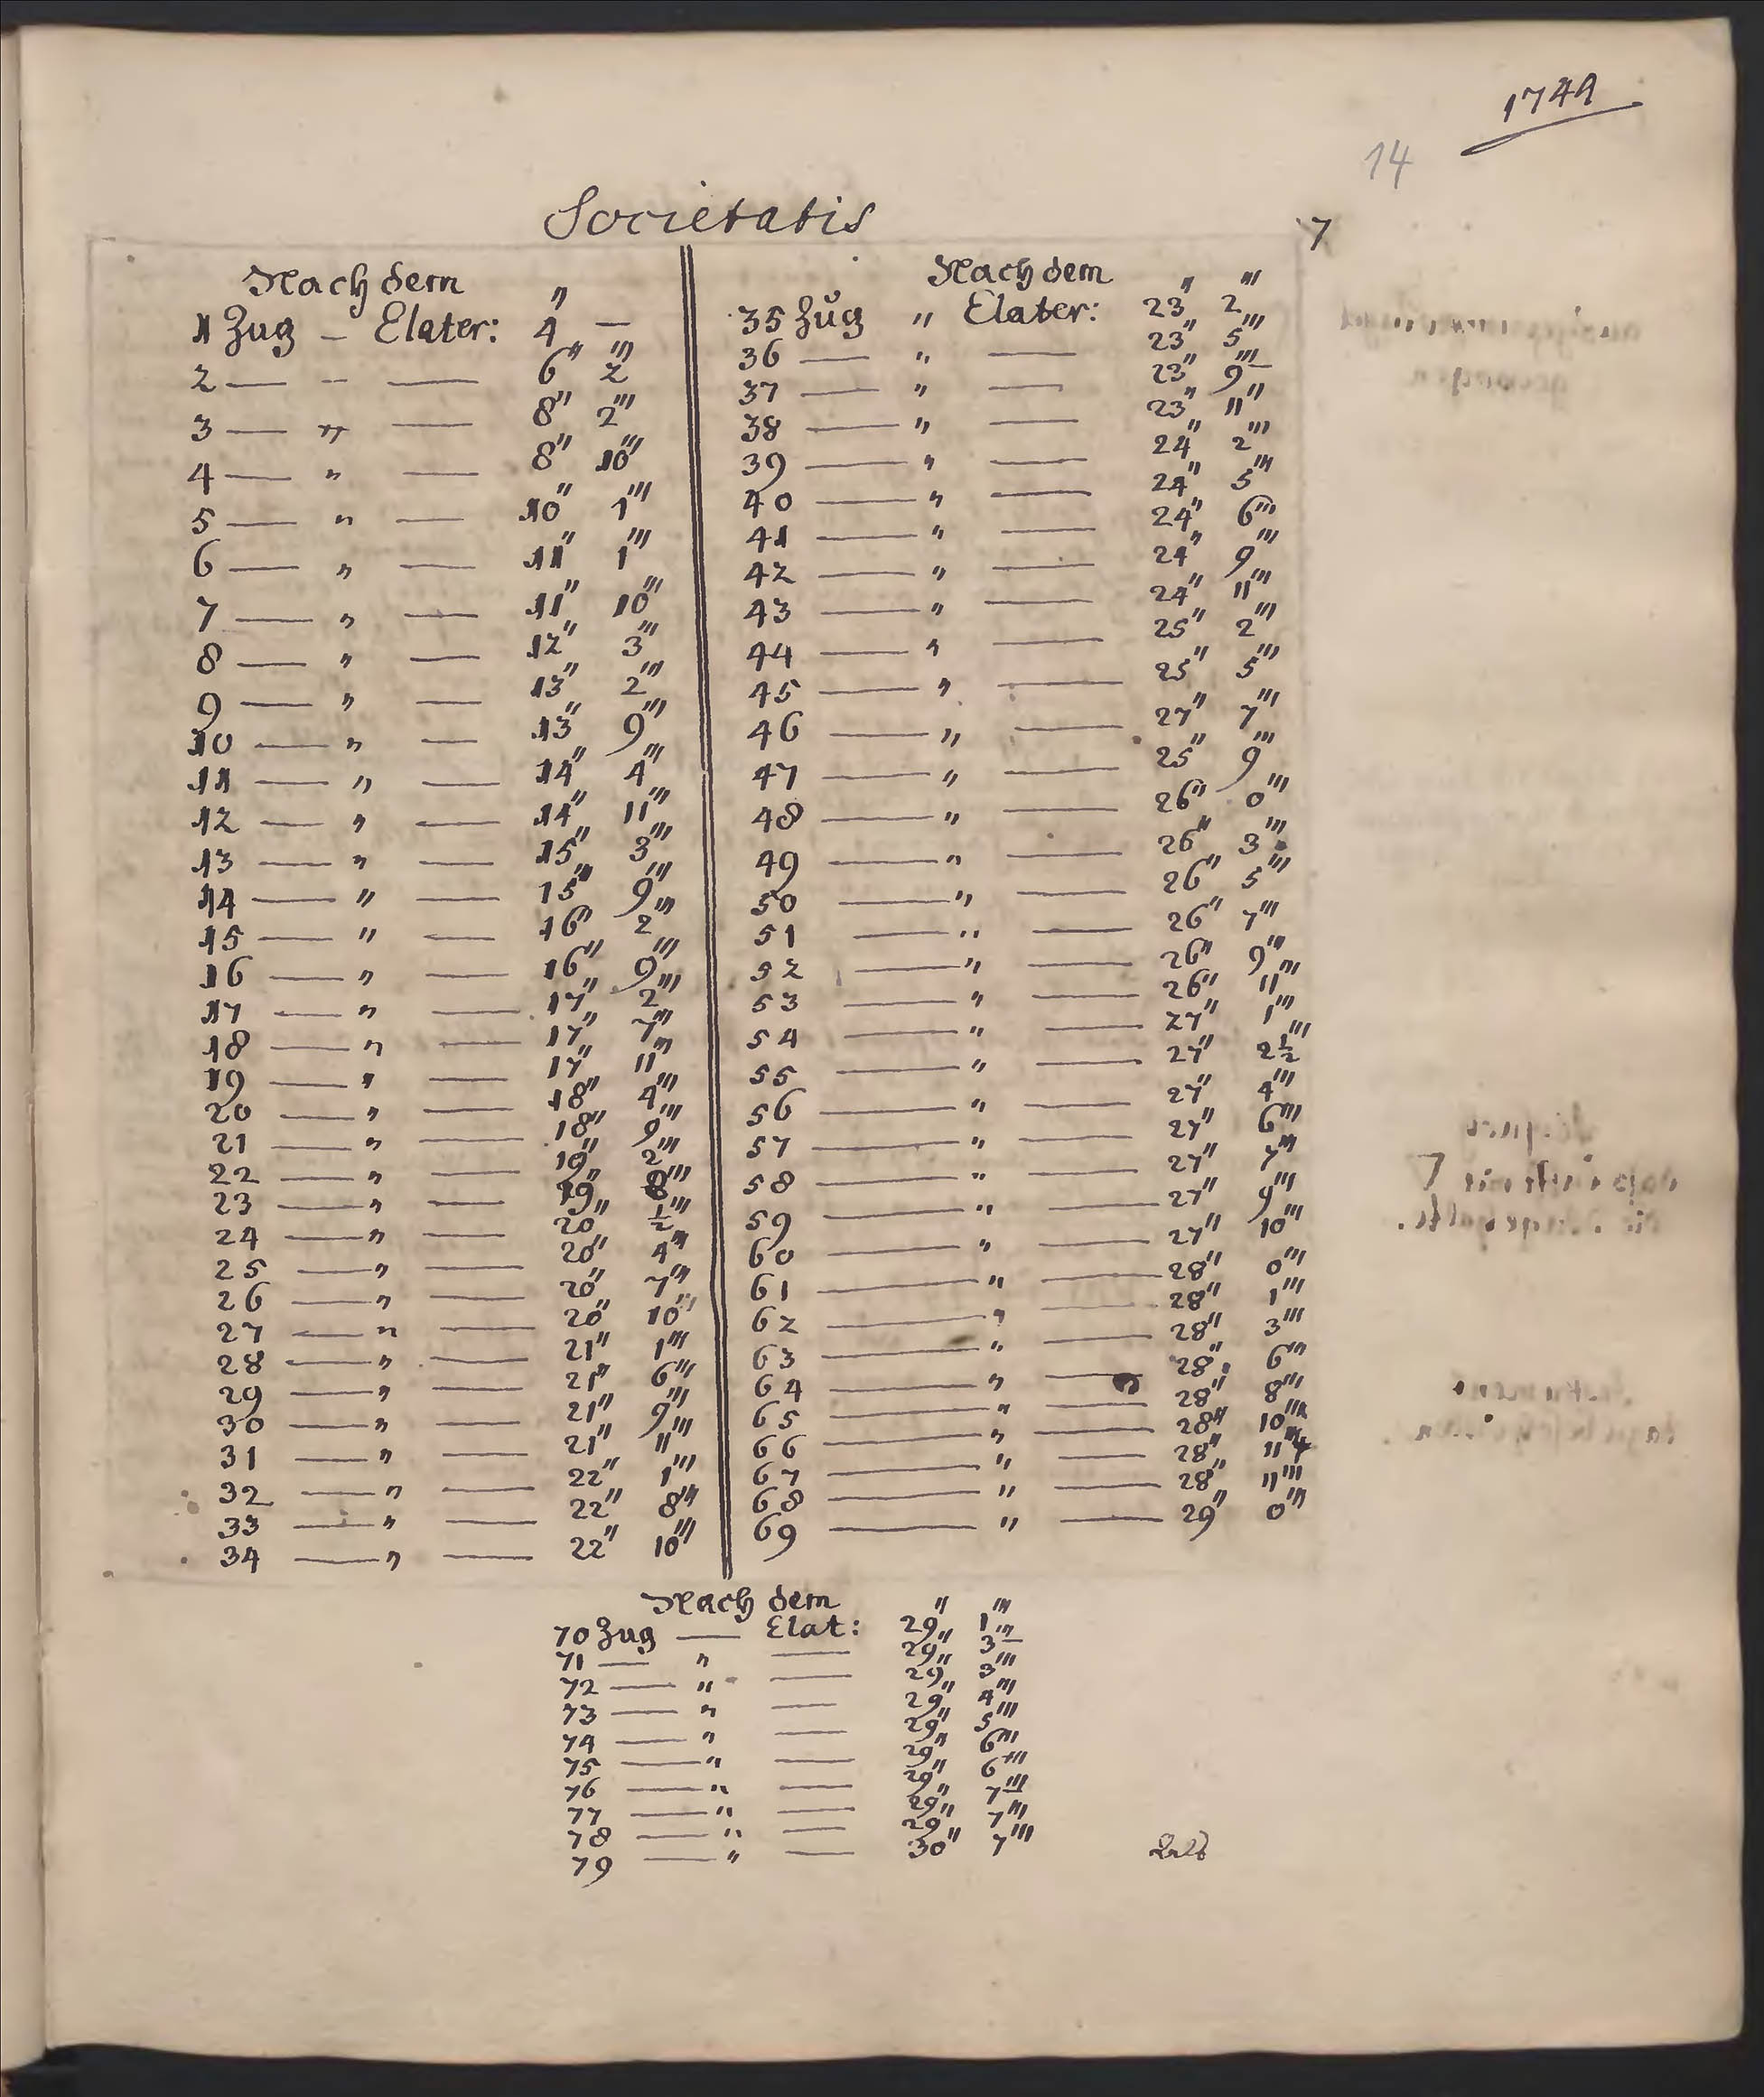 1744
14
Societatis
7
Nach dem
1 Zug – Elater: 4" —
2 — " — 6" 2'''
3 — " — 8" 2'''
4 — " — 8" 10'''
5 — " — 10" 1'''
6 — " — 11" 1'''
7 — " — 11" 10'''
8 — " — 12" 3'''
9 — " — 13" 2'''
10 — " — 13" 9'''
11 — " — 14" 4'''
12 — " — 14" 11'''
13 — " — 15" 3'''
14 — " — 15" 9'''
15 — " — 16" 2'''
16 — " — 16" 9'''
17 — " — 17" 2'''
18 — " — 17" 7'''
19 — " — 17" 11'''
20 — " — 18" 4'''
21 — " — 18" 9'''
22 — " — 19" 2'''
23 — " — 19" 8'''
24 — " — 20" ½'''
25 — " — 20" 4'''
26 — " — 20" 7'''
27 — " — 20" 10'''
28 — " — 21" 1'''
29 — " — 21" 6'''
30 — " — 21" 9'''
31 — " — 21" 11'''
32 — " — 22" 1'''
33 — " — 22" 8'''
34 — " — 22" 10'''
Nach dem
35 Zug " Elater: 23" 2'''
36 — " — 23" 5'''
37 — " — 23" 9'''
38 — " — 23" 11'''
39 — " — 24" 2'''
40 — " — 24" 5'''
41 — " — 24" 6'''
42 — " — 24" 9'''
43 — " — 24" 11'''
44 — " — 25" 2'''
45 — " — 25" 5'''
46 — " — 27" 7'''
47 — " — 25" 9'''
48 — " — 26" 0'''
49 — " — 26" 3'''
50 — " — 26" 5'''
51 — " — 26" 7'''
52 — " — 26" 9'''
53 — " — 26" 11'''
54 — " — 27" 1'''
55 — " — 27" 2½'''
56 — " — 27" 4'''
57 — " — 27" 6'''
58 — " — 27" 7'''
59 — " — 27" 9'''
60 — " — 27" 10'''
61 — " — 28" 0'''
62 — " — 28" 1'''
63 — " — 28" 3'''
64 — " — 28" 6'''
65 — " — 28" 8'''
66 — " — 28" 10'''
67 — " — 28" 11'''
68 — " — 28" 11'''
69 — " — 29" 0'''
Nach dem
70 Zug — Elat: 29" 1'''
71 — " — 29" 3'''
72 — " — 29" 3'''
73 — " — 29" 4'''
74 — " — 29" 5'''
75 — " — 29" 6'''
76 — " — 29" 6'''
77 — " — 29" 7'''
78 — " — 29" 7'''
79 — " — 30" 7'''